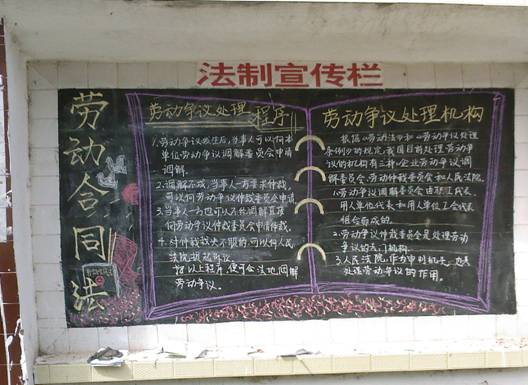 法制宣传栏
劳动合同法
劳动争议处理程序
1.劳动争议发生后,当事人可以向本
单位劳动争议调解委员会申请
调解.
2.调解不成,当事人一方要求仲裁,
可以向劳动争议仲裁委员会申请
3.当事人一方也可以不经调解直接
向劳动争议仲裁委员会申请仲裁.
4.对仲裁裁决不服的,可以向人民
法院提起诉讼.
按以上程序,便可合法地调解
劳动争议.
劳动争议处理机构
根据《劳动法》和《劳动争议处理
条例》的规定,我国目前处理劳动争
议的机构有三种:企业劳动争议调
解委员会,劳动仲裁委员会和人民法院.
1.劳动争议调解委员会由职工代表,
用人单位代表和用人单位工会代表
组合而成的.
2.劳动争议仲裁委员会是处理劳动
争议的专门机构.
3.人民法院,作为审判机关,也是
处理劳动争议的作用.